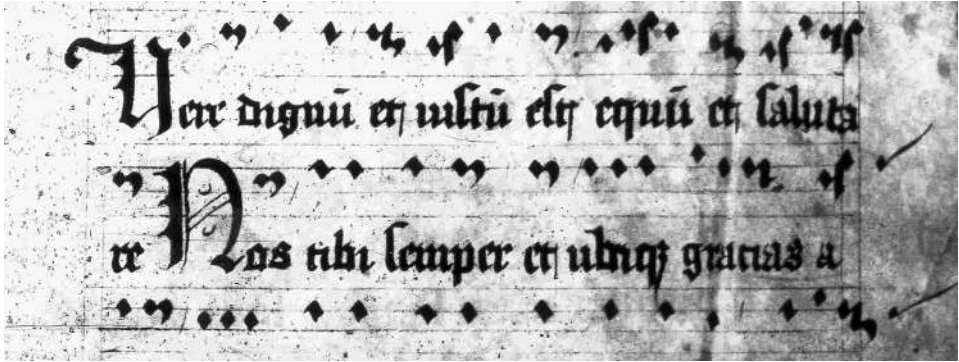 Vere dignū et iustū est equū et saluta
re Nos tibi semper et ubiqȝ gracias a